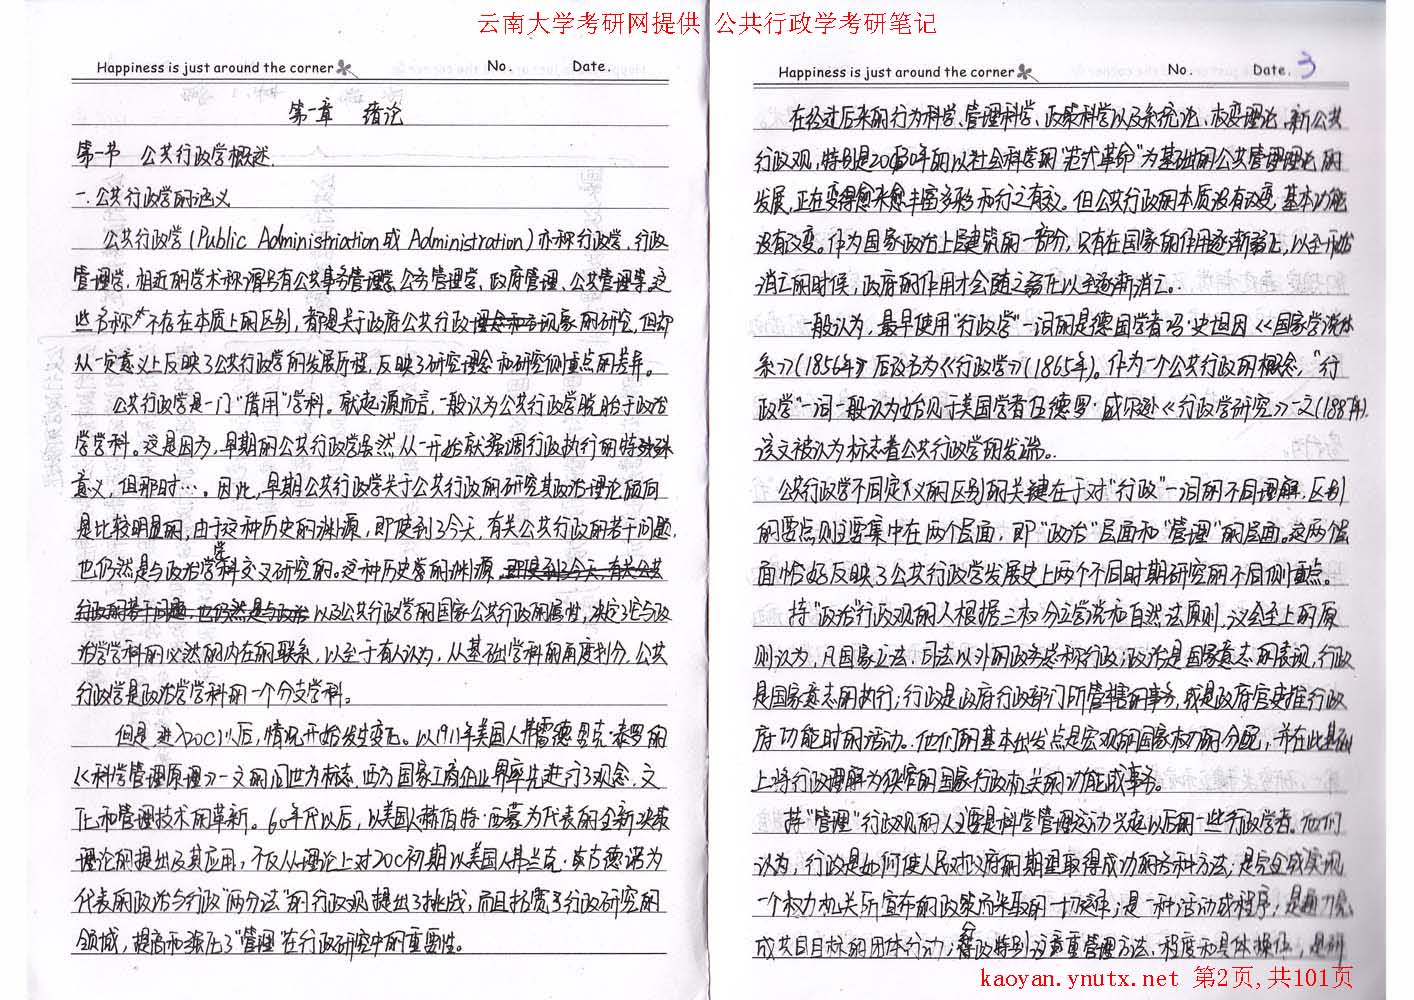 云南大学考研网提供 公共行政学考研笔记
Happiness is just around the corner No. Date.
第一章 绪论
第一节 公共行政学概述.
一.公共行政学的涵义
公共行政学(Public Administriation或 Administration)亦称行政学、行政
管理学,相近的学术称谓另有公共事务管理学、公务管理学、政府管理、公共管理等,这
些名称不存在本质上的区别,都是关于政府公共行政现象的研究,但却
从一定意义上反映了公共行政学的发展历程,反映了研究理念和研究侧重点的差异。
公共行政学是一门“借用”学科。就起源而言,一般认为公共行政学脱胎于政治
学学科。这是因为,早期的公共行政学虽然从一开始就强调行政执行的特殊
意义,但那时…。因此,早期公共行政学关于公共行政的研究其政治理论倾向
是比较明显的,由于这种历史的渊源,即使到了今天,有关公共行政的若干问题,
也仍然是与政治学学科交叉研究的。这种历史学的渊源,
以及公共行政学的国家公共行政的属性,决定了它与政
治学学科的必然的内在的联系,以至于有人认为,从基础学科的角度划分,公共
行政学是政治学学科的一个分支学科。
但是进入20C以后,情况开始发生变化。以1911年美国人弗雷德里克·泰罗的
《科学管理原理》一文的问世为标志,西方国家工商企业界率先进行了观念、文
化和管理技术的革新。60年代以后,以美国人赫伯特·西蒙为代表的全新决策
理论的提出及其应用,不仅从理论上对20C初期以美国人弗兰克·古德诺为
代表的政治与行政“两分法”的行政观提出了挑战,而且拓宽了行政研究的
领域,提高和强化了“管理”在行政研究中的重要性。
Happiness is just around the corner No. Date. 3
在经过后来的行为科学、管理科学、政策科学以及系统论、权变理论、新公共
行政观,特别是20世纪 年的以社会科学的“范式革命”为基础的公共管理理论的
发展,正在变得愈来愈丰富多彩而行之有效。但公共行政的本质没有改变,基本功能
没有改变。作为国家政治上层建筑的一部分,只有在国家的作用逐渐弱化,以至开始
消亡的时候,政府的作用才会随之弱化以至逐渐消亡。
一般认为,最早使用“行政学”一词的是德国学者冯·史坦因《国家学说体
系》(1856年)后改名为《行政学》(1865年)。作为一个公共行政的概念,“行
政学”一词一般认为始见于美国学者伍德罗·威尔逊《行政学研究》一文(1887年),
该文被认为标志着公共行政学的发端。
公共行政学不同定义的区别的关键在于对“行政”一词的不同理解,区别
的要点则主要集中在两个层面,即“政治”层面和“管理”的层面。这两个层
面恰好反映了公共行政学发展史上两个不同时期研究的不同侧重点。
持“政治”行政观的人根据三权分立学说和自然法原则、议会至上的原
则认为,凡国家立法、司法以外的政务总称行政;政治是国家意志的表现,行政
是国家意志的执行;行政是政府行政部门所管辖的事务,或是政府官吏推行政
府功能时的活动。他们的基本出发点是宏观的国家权力的分配,并在此基础
上将行政理解为狭窄的国家行政机关的功能或事务。
持“管理”行政观的人主要是科学管理运动兴起以后的一些行政学者。他们
认为,行政是如何使人民对政府的期望取得成功的各种方法;是完全或实现
一个权力机关所宣布的政策而采取的一切 ;是一种活动或程序,是 
成共同目标的团体行动;行政特别注意重管理方法、程度和具体操作,是研
kaoyan.ynutx.net 第2页,共101页